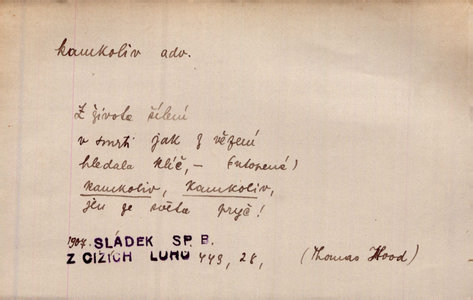 kamkoliv adv.
Z života šílení
v smrti jak z vězení
hledala klíč, – (utopená)
kamkoliv, kamkoliv,
jen ze světa pryč!
1907 SLÁDEK SP. B.
Z CIZÍCH LUHŮ 449, 28, (Thomas Hood)